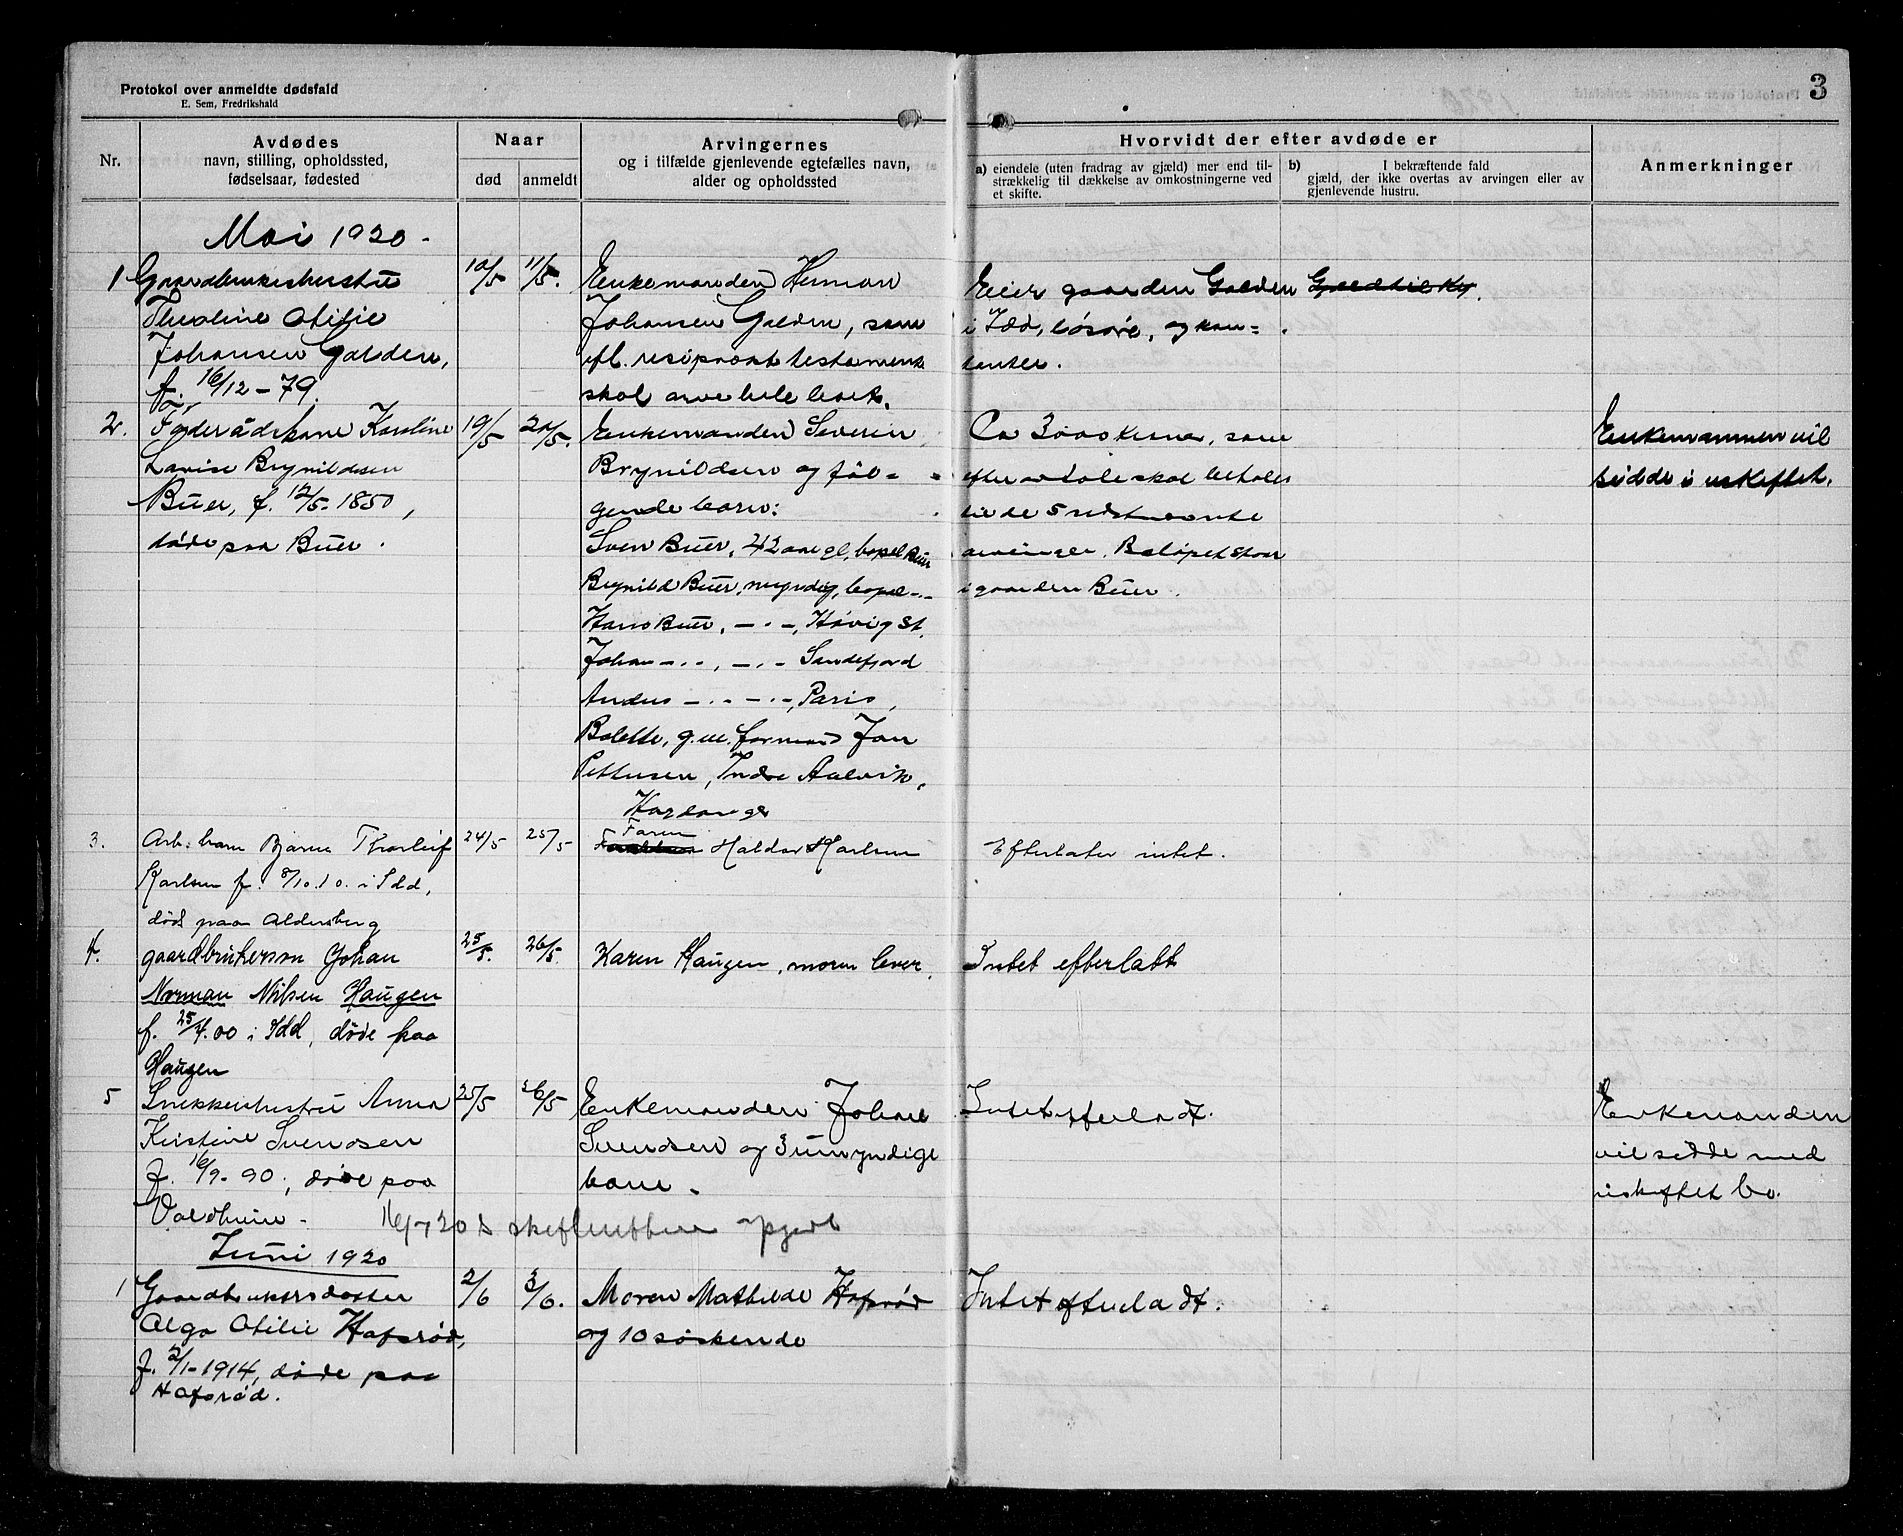 3
Protokol over anmeldte dødsfald
E. Sem, Fredrikshald
Nr.
Avdødes
navn, stilling, opholdssted,
fødselsaar, fødested
Naar
død
anmeldt
Arvingernes
og i tilfælde gjenlevende egtefælles navn,
alder og opholdssted
Hvorvidt der efter avdøde er
a) eiendele (uten fradrag av gjæld) mer end til-
strækkelig til dækkelse av omkostningerne ved
et skifte.
b) I bekræftende fald
gjæld, der ikke overtas av arvingen eller av
gjenlevende hustru.
Anmerkninger
Mai 1920.
1 Gaardbrukerhustru
Theoline Otilie
Johansen Galden,
f. 16/12-79.
10/5
11/5.
Enkemanden Herman
Johansen Galden, som
efl. resiprokt testament
skal arve hele boet.
Eier gaarden Galden
i Idd, løsøre, og kon-
tanter.
2. Føderådskone Karoline
Lovise Brynildsen
Buer, f. 12/5-1850,
døde paa Buer.
19/5
20/5.
Enkemanden Severin
Brynildsen og føl-
gende barn:
Sven Buer, 42 aar gl, bopel Buer
Brynild Buer, myndig, bopel -"-
Hans Buer, -"-, Høvig st.
Johan -"-, -"- Sandefjord
Anders -"- -"-, Paris,
Bolette, g.m. formand Jan
Pettersen, Indre Aalvik,
Hardanger
Ca 3000 kroner, som
efter avtale skal betales
til de 5 sidstnævnte
arvinger. Beløpet staar
i gaarden Buer.
Enkemannen vil
sidde i uskiftet.
3. Arb. barn Bjarne Thorleif
Karlsen f. 8/10.10. i Idd,
død paa Aldersberg
24/5
25/5
Faren
Haldor Karlsen
Efterlater intet.
4. gaardbrukersøn Johan
Norman Nilsen Haugen
f. 25/4.00 i Idd, døde paa
Haugen
25/5.
26/5.
Karen Haugen, moren lever.
Intet efterlatt
5 Snekkerhustru Anna
Kristine Svendsen
f. 16/9-90, døde paa
Valdheim.
25/5
26/5
Enkemanden Johan
Svendsen og 3 umyndige
barn.
Intet efterladt.
Enkemanden
vil sidde med
uskiftet bo.
16/7 20 skifteretten opgjort
Juni 1920
1 Gaardbrukersdatter
Olga Otilie Hafsrød,
f. 2/1-1914, døde paa
Hafsrød.
2/6
3/6.
Moren Mathilde Hafsrød
og 10 søskende
Intet efterladt.